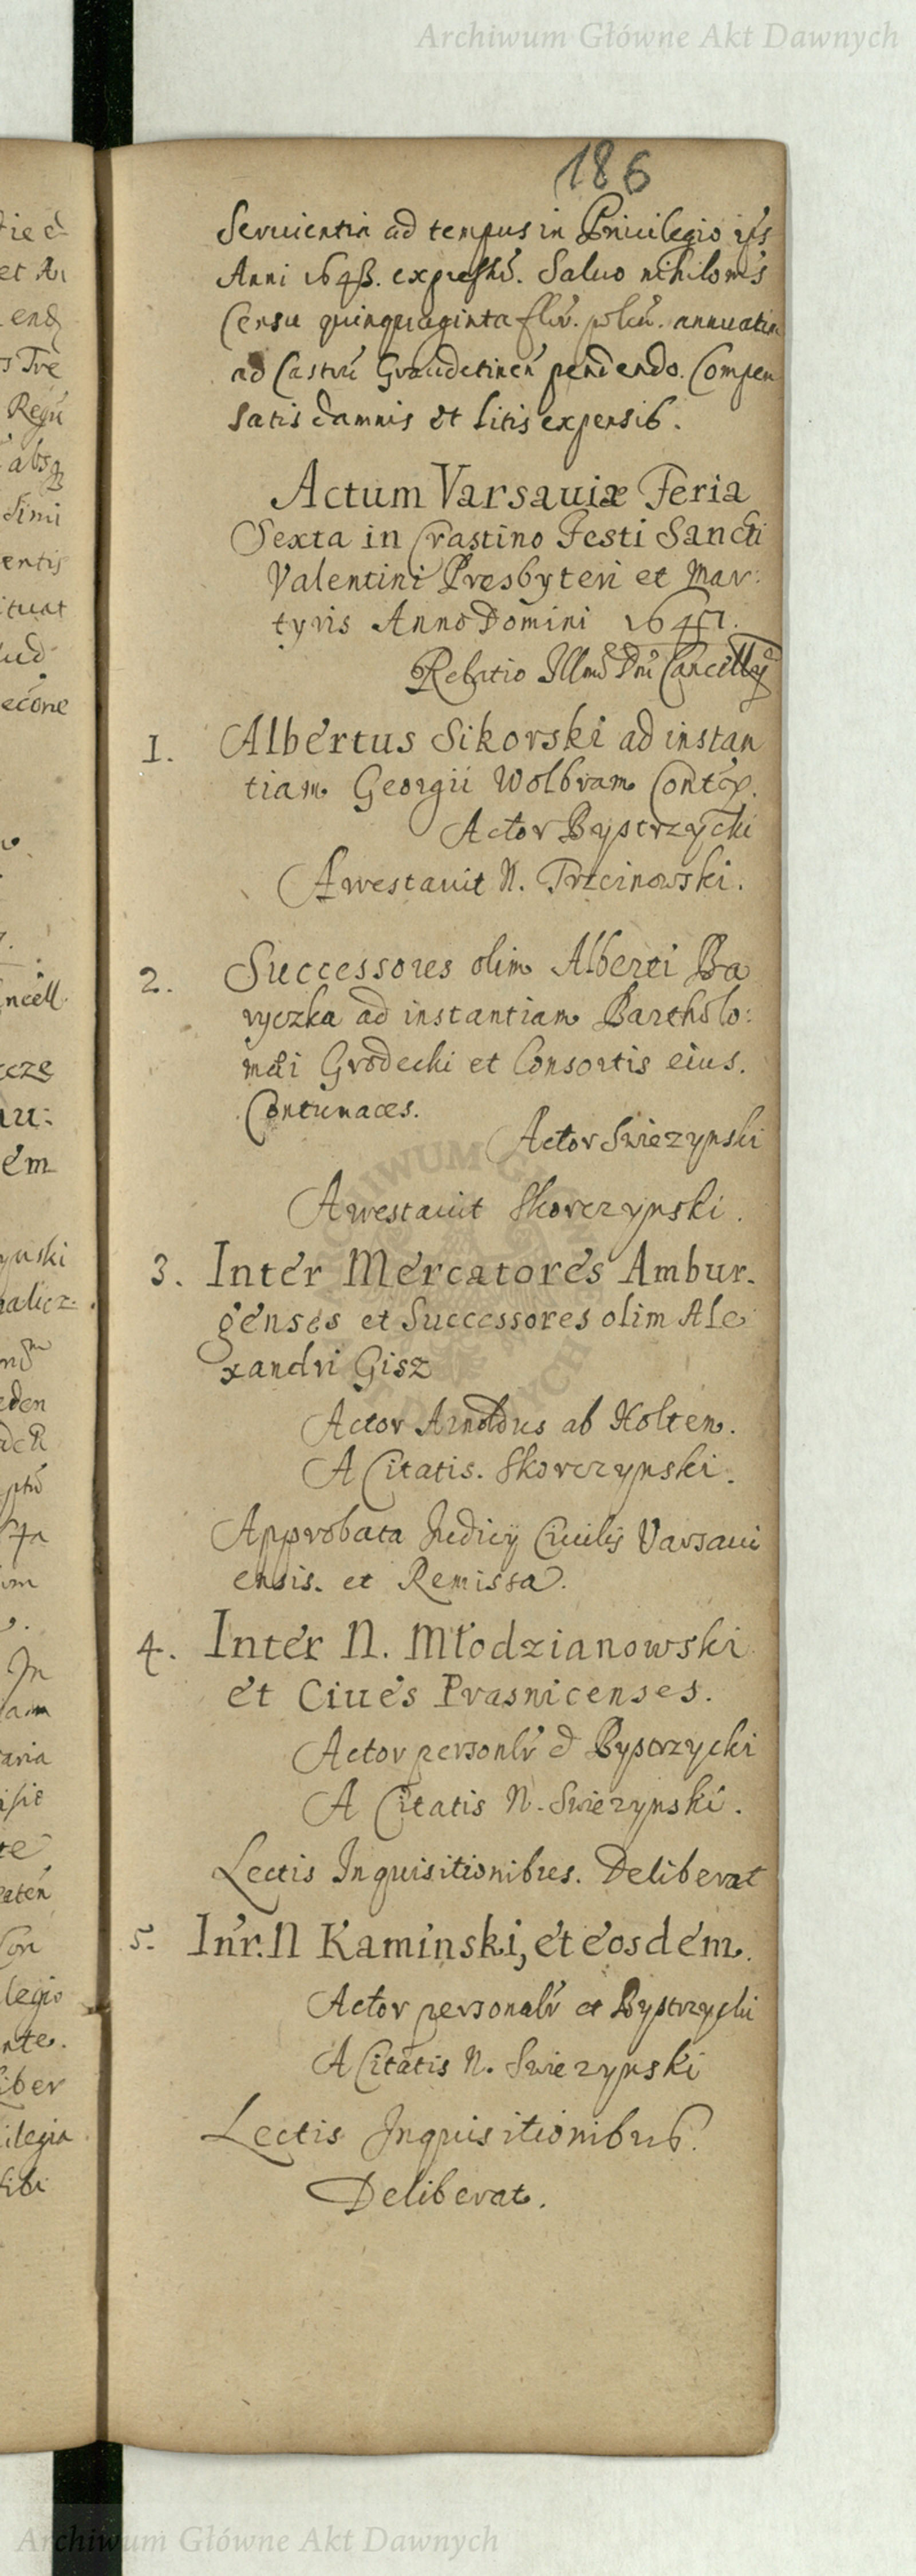 Archiwum Główne Akt Dawnych
186
Seruientia ad tempus in Priuilegio
Anni expressũ. Saluo nihilomĩs
Censu quinquaginta flór. polcũ. annuatim
ad Castrũ Graudetineñ pendendo. Compen
satis damnis et litis expensis.
Actum Varsauiæ Feria
Sexta in Crastino Festi Sancti
Valentini Presbyteri et Mar:
tyris Anno Domini
Relatio Illmĩ Dni Cancellrÿ
1. Albertus Sikorski ad instan
tiam Georgii Wolbram Contẽp.
Actor Bystrzycki
Arrestauit N. Trzcinowski.
2. Successores olim Alberti Ba
ryczka ad instantiam Bartholo:
mæi Grodecki et Consortis eius.
Contumaces.
Actor Swiezynski
Arrestauit Skorczynski.
3. Inter Mercatores Ambur.
genses et Successores olim Ale
xandri Gisz
Actor Arnoldus ab Holten.
A Citatis. Skorczynski.
Approbata Judicÿ Ciuilis Varsaui
ensis. et Remissa.
4. Inter N. Młodzianowski
et Ciues Prasnicenses.
Actor personlr̃ et Bystrzycki
A Citatis N. Swiezynski.
Lectis Inquisitionibus. Deliberat
5. Inr̃. N Kaminski, et eosdem.
Actor personalr̃ et Bystrzycki
A Citatis N. Swiezynski
Lectis Inquisitionibus.
Deliberat.
Archiwum Główne Akt Dawnych